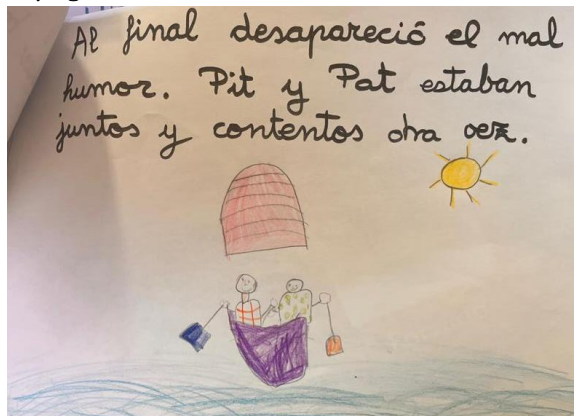 Al final desapareció el mal
humor. Pit y Pat estaban
juntos y contentos otra vez.